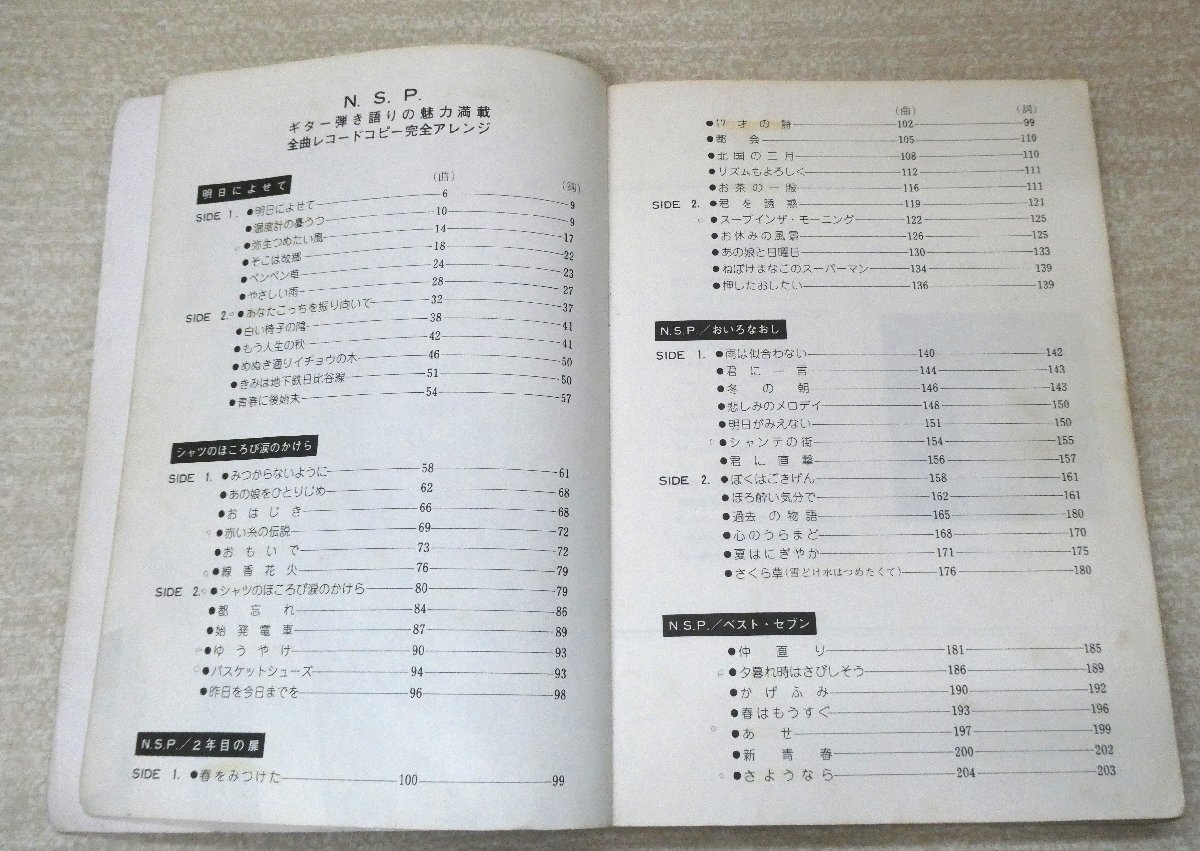 N. S. P.
ギター弾き語りの魅力満載
全曲レコードコピー完全アレンジ
(曲) (詞)
明日によせて
SIDE 1. ●明日によせて 6 9
●温度計の憂うつ 10 9
●弥生つめたい風 14 17
●そこは故郷 18 22
●ペンペン草 24 23
●やさしい雨 28 27
SIDE 2. ●あなたこっちを振り向いて 32 37
●白い椅子の陰 38 41
●もう人生の秋 42 41
●めぬき通りイチョウの木 46 50
●きみは地下鉄日比谷線 51 50
●青春に後始末 54 57
シャツのほころび涙のかけら
SIDE 1. ●みつからないように 58 61
●あの娘をひとりじめ 62 68
●おはじき 66 68
●赤い糸の伝説 69 72
●おもいで 73 72
●線香花火 76 79
SIDE 2. ●シャツのほころび涙のかけら 80 79
●都忘れ 84 86
●始発電車 87 89
●ゆうやけ 90 93
●バスケットシューズ 94 93
●昨日を今日までを 96 98
N.S.P./2年目の扉
SIDE 1. ●春をみつけた 100 99
(曲) (詞)
●17才の詩 102 99
●都会 105 110
●北国の三月 108 110
●リズムもよろしく 112 111
●お茶の一服 116 111
SIDE 2. ●君を誘惑 119 121
●スープインザ・モーニング 122 125
●お休みの風景 126 125
●あの娘と日曜日 130 133
●ねぼけまなこのスーパーマン 134 139
●押したおしたい 136 139
N.S.P./おいろなおし
SIDE 1. ●雨は似合わない 140 142
●君に一言 144 143
●冬の朝 146 143
●悲しみのメロデイ 148 150
●明日がみえない 151 150
●シャンテの街 154 155
●君に直撃 156 157
SIDE 2. ●ぼくはごきげん 158 161
●ほろ酔い気分で 162 161
●過去の物語 165 180
●心のうらまど 168 170
●夏はにぎやか 171 175
●さくら草(雪どけ水はつめたくて) 176 180
N.S.P./ベスト・セブン
●仲直り 181 185
●夕暮れ時はさびしそう 186 189
●かげふみ 190 192
●春はもうすぐ 193 196
●あせ 197 199
●新青春 200 202
●さようなら 204 203